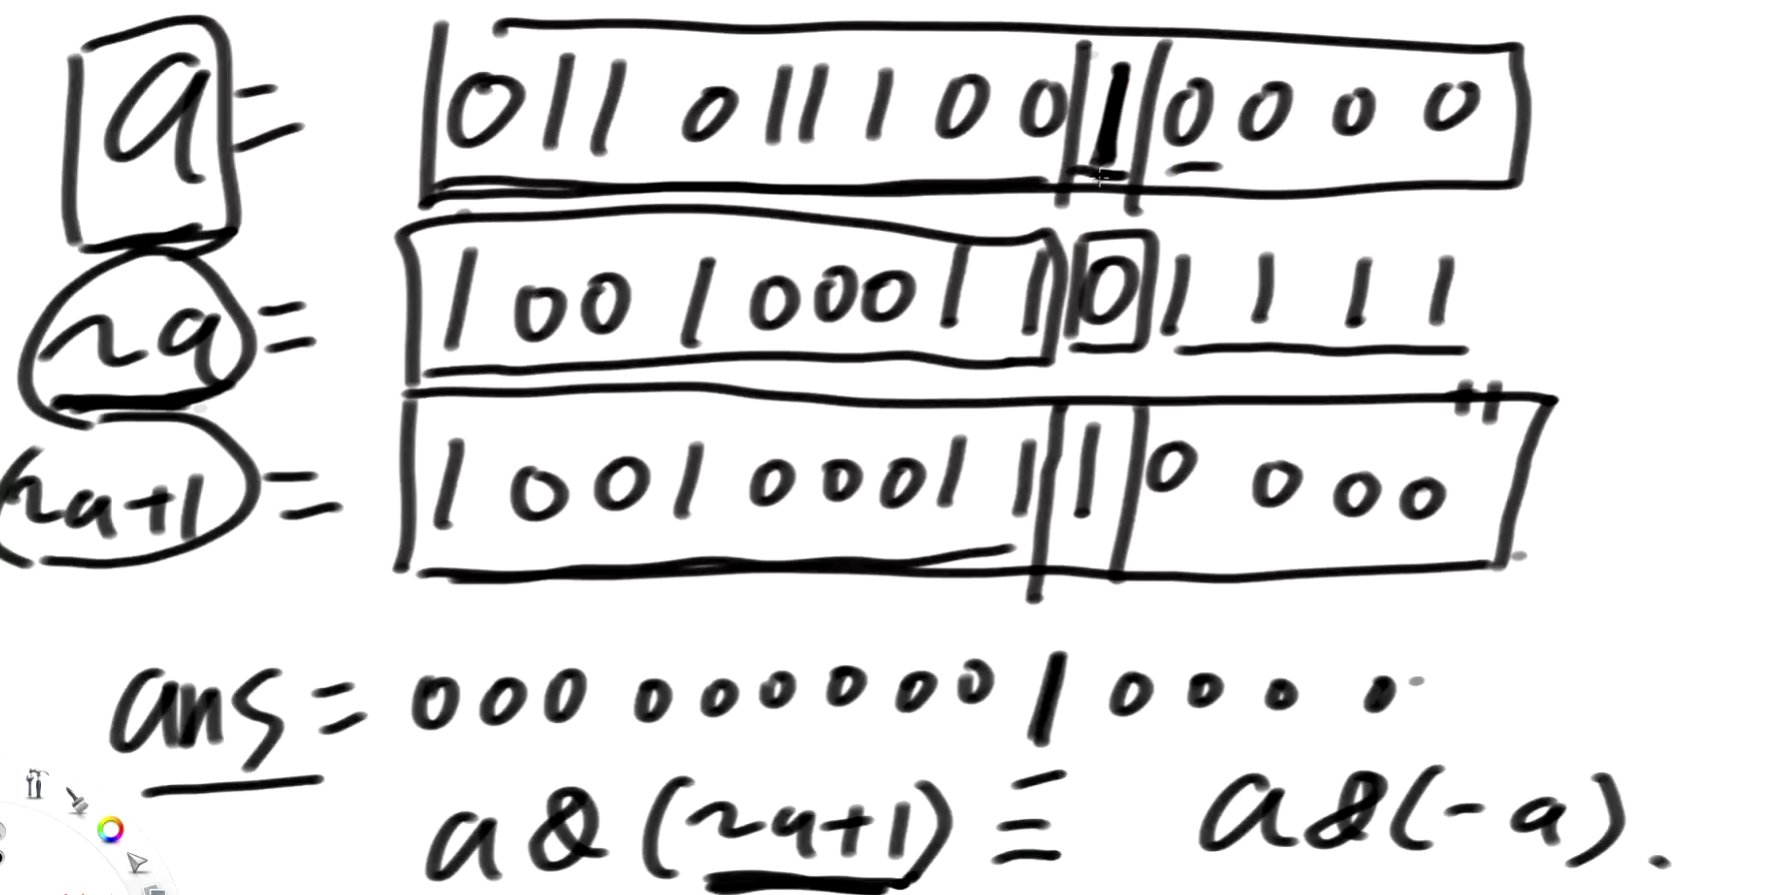 a = 011011100100000
~a = 100100011011111
~a+1 = 100100011100000
ans = 00000000010000
a & (~a+1) ≡ a & (-a).